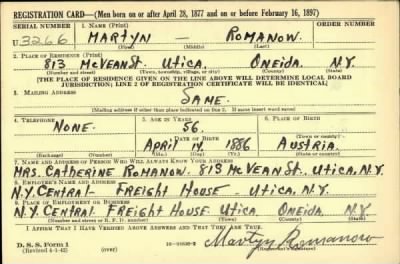 REGISTRATION CARD—(Men born on or after April 28, 1877 and on or before February 16, 1897)
SERIAL NUMBER 1. NAME (Print) ORDER NUMBER
U 3266 MARTYN — ROMANOW.
(First) (Middle) (Last)
2. PLACE OF RESIDENCE (Print)
813 McVEAN St. UTICA, ONEIDA N.Y.
(Number and street) (Town, township, village, or city) (County) (State)
[THE PLACE OF RESIDENCE GIVEN ON THE LINE ABOVE WILL DETERMINE LOCAL BOARD
JURISDICTION; LINE 2 OF REGISTRATION CERTIFICATE WILL BE IDENTICAL]
3. MAILING ADDRESS
SAME.
[Mailing address if other than place indicated on line 2. If same insert word same]
4. TELEPHONE 5. AGE IN YEARS 6. PLACE OF BIRTH
NONE. 56.
DATE OF BIRTH (Town or county)
APRIL 14, 1886 AUSTRIA.
(Exchange) (Number) (Mo.) (Day) (Yr.) (State or country)
7. NAME AND ADDRESS OF PERSON WHO WILL ALWAYS KNOW YOUR ADDRESS
MRS. CATHERINE ROMANOW. 813 McVEAN St. UTICA, N.Y.
8. EMPLOYER'S NAME AND ADDRESS
N.Y. CENTRAL - FREIGHT HOUSE - UTICA, N.Y.
9. PLACE OF EMPLOYMENT OR BUSINESS
N.Y. CENTRAL FREIGHT HOUSE UTICA, ONEIDA, N.Y.
(Number and street or R. F. D. number) (Town) (County) (State)
I AFFIRM THAT I HAVE VERIFIED ABOVE ANSWERS AND THAT THEY ARE TRUE.
D. S. S. Form 1
(Revised 4-1-42) (over) Martyn Romanow
(Registrant's signature)